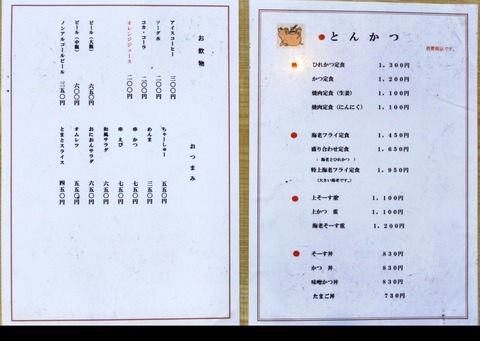 お飲物
アイスコーヒー 三〇〇円
ソーダ水 二〇〇円
コカ・コーラ 二〇〇円
オレンジジュース 二〇〇円
ビール（大瓶） 六五〇円
ビール（小瓶） 六〇〇円
ノンアルコールビール 三五〇円
おつまみ
ちゃーしゅー 五五〇円
めんま 三五〇円
串えび 七五〇円
串かつ 七五〇円
和風サラダ 六五〇円
おにおんサラダ 六五〇円
オムレツ 五五〇円
とまとスライス 四五〇円
とんかつ
ひれかつ定食 1,300円
かつ定食 1,200円
焼肉定食（生姜） 1,100円
焼肉定食（にんにく） 1,100円
海老フライ定食 1,450円
盛り合わせ定食 1,650円
（海老とひれかつ）
特上海老フライ定食 1,950円
（大きい海老です。）
上そーす重 1,100円
上かつ重 1,100円
海老そーす重 1,200円
そーす丼 830円
かつ丼 830円
味噌かつ丼 830円
たまご丼 730円